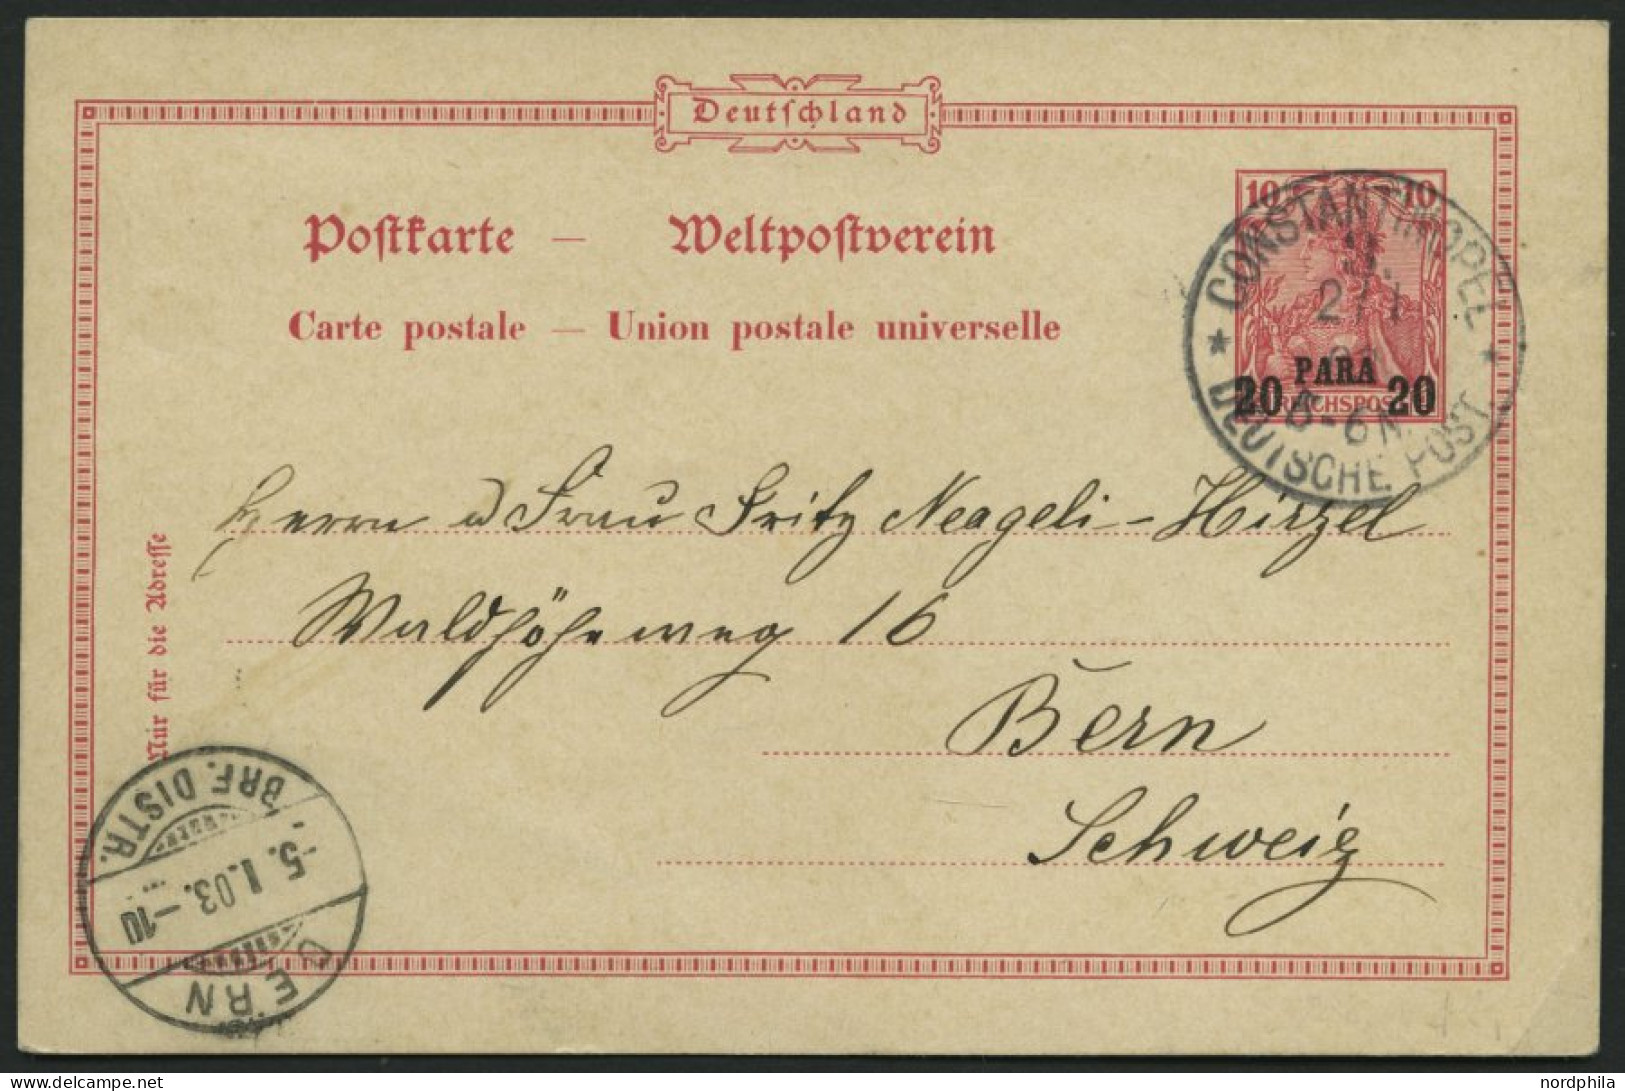 Deutschland
Postkarte — Weltpostverein
Carte postale — Union postale universelle
10 10
PARA
20 20
REICHSPOST
CONSTANTINOPEL
2/1
5-6N.
DEUTSCHE POST.
Herrn u Frau Fritz Neageli-Hirzel
Waldhöheweg 16
Bern
Schweiz
Nur für die Adresse
BRF. DISTR.
-5. I. 03. -10
BERN
nordphila